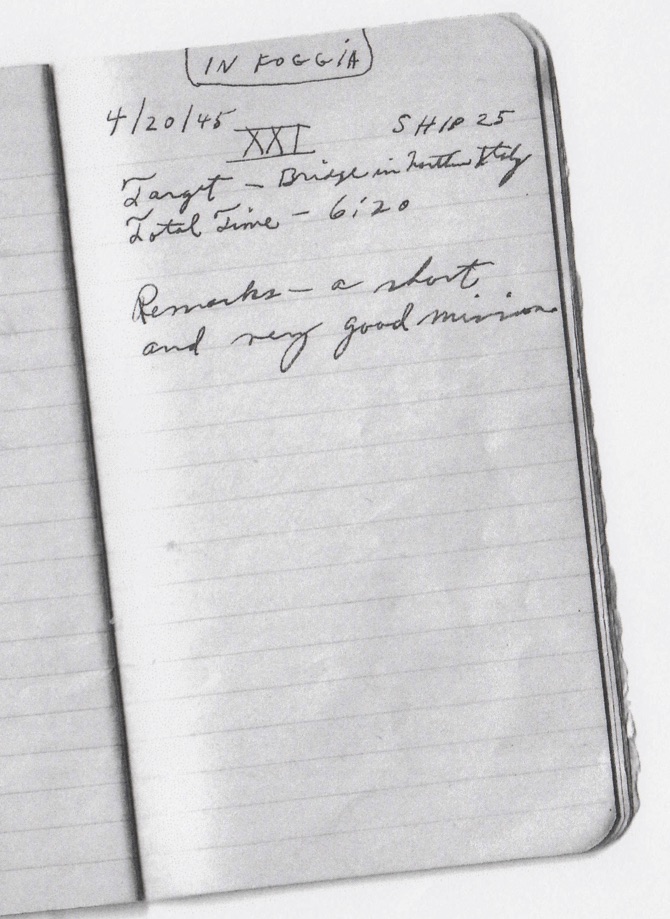 IN FOGGIA
4/20/45 SHIP 25
XXI
Target - Bridge in Northern Italy
Total Time - 6:20
Remarks - a short
and very good mission